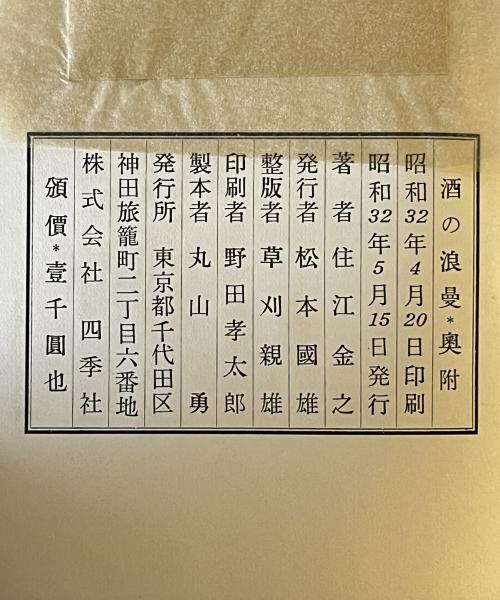 酒の浪曼*奥附
昭和32年4月20日印刷
昭和32年5月15日発行
著者 住江金之
発行者 松本國雄
整版者 草刈親雄
印刷者 野田孝太郎
製本者 丸山勇
発行所 東京都千代田区
神田旅籠町二丁目六番地
株式会社 四季社
頒價*壹千圓也